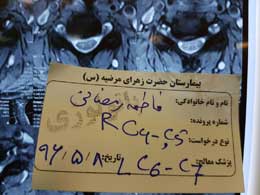 بیمارستان حضرت زهرای مرضیه (س)
نام و نام خانوادگی: فاطمه رمضانی
شماره پرونده:
نوع درخواست: R C4-C5
پزشک معالج: L C6-C7
تاریخ: ۹۶/۵/۸
فوری